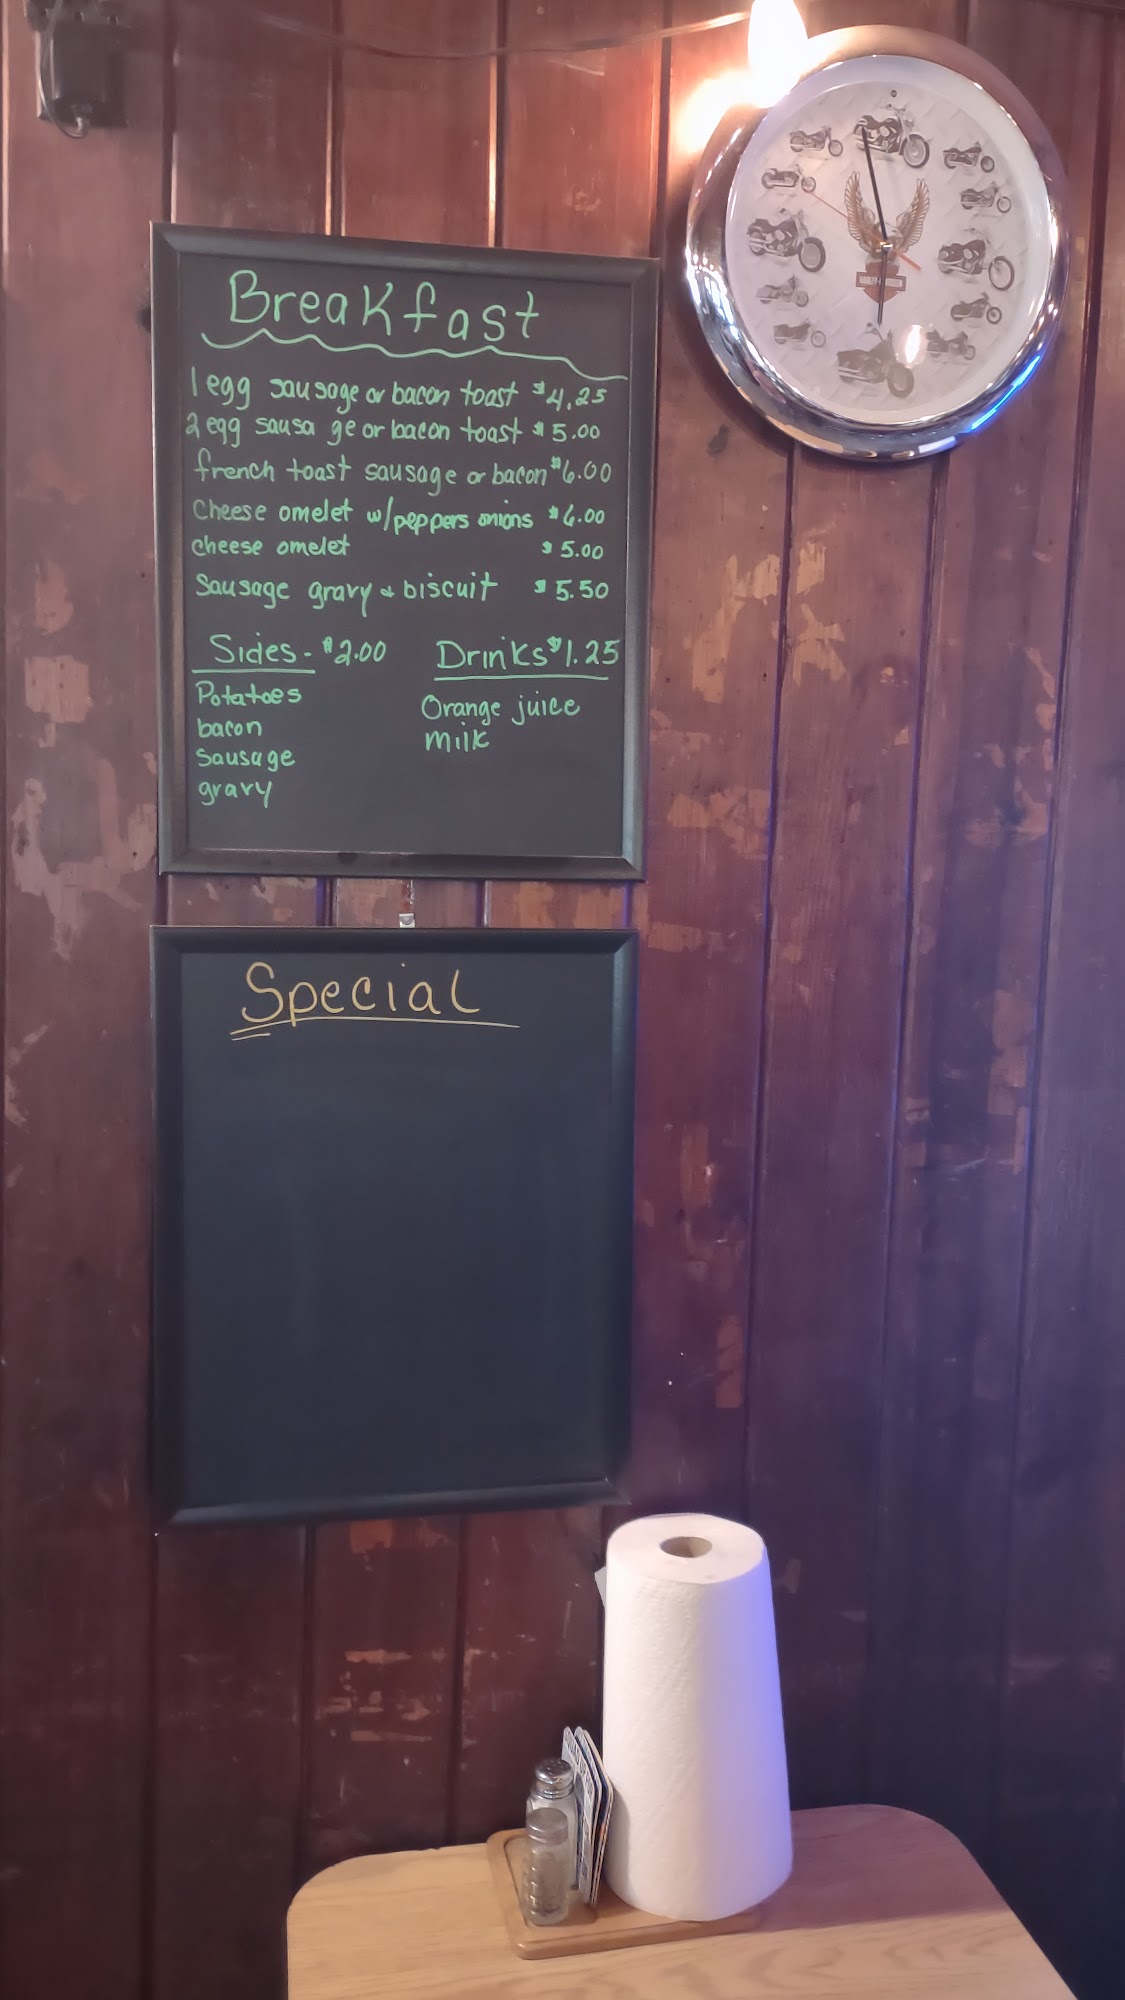 Breakfast
1 egg sausage or bacon toast $4.25
2 egg sausage or bacon toast $5.00
french toast sausage or bacon $6.00
Cheese omelet w/peppers onions $6.00
cheese omelet $5.00
Sausage gravy & biscuit $5.50
Sides - $2.00
Potatoes
bacon
Sausage
gravy
Drinks $1.25
Orange juice
milk
Special
HARLEY-DAVIDSON